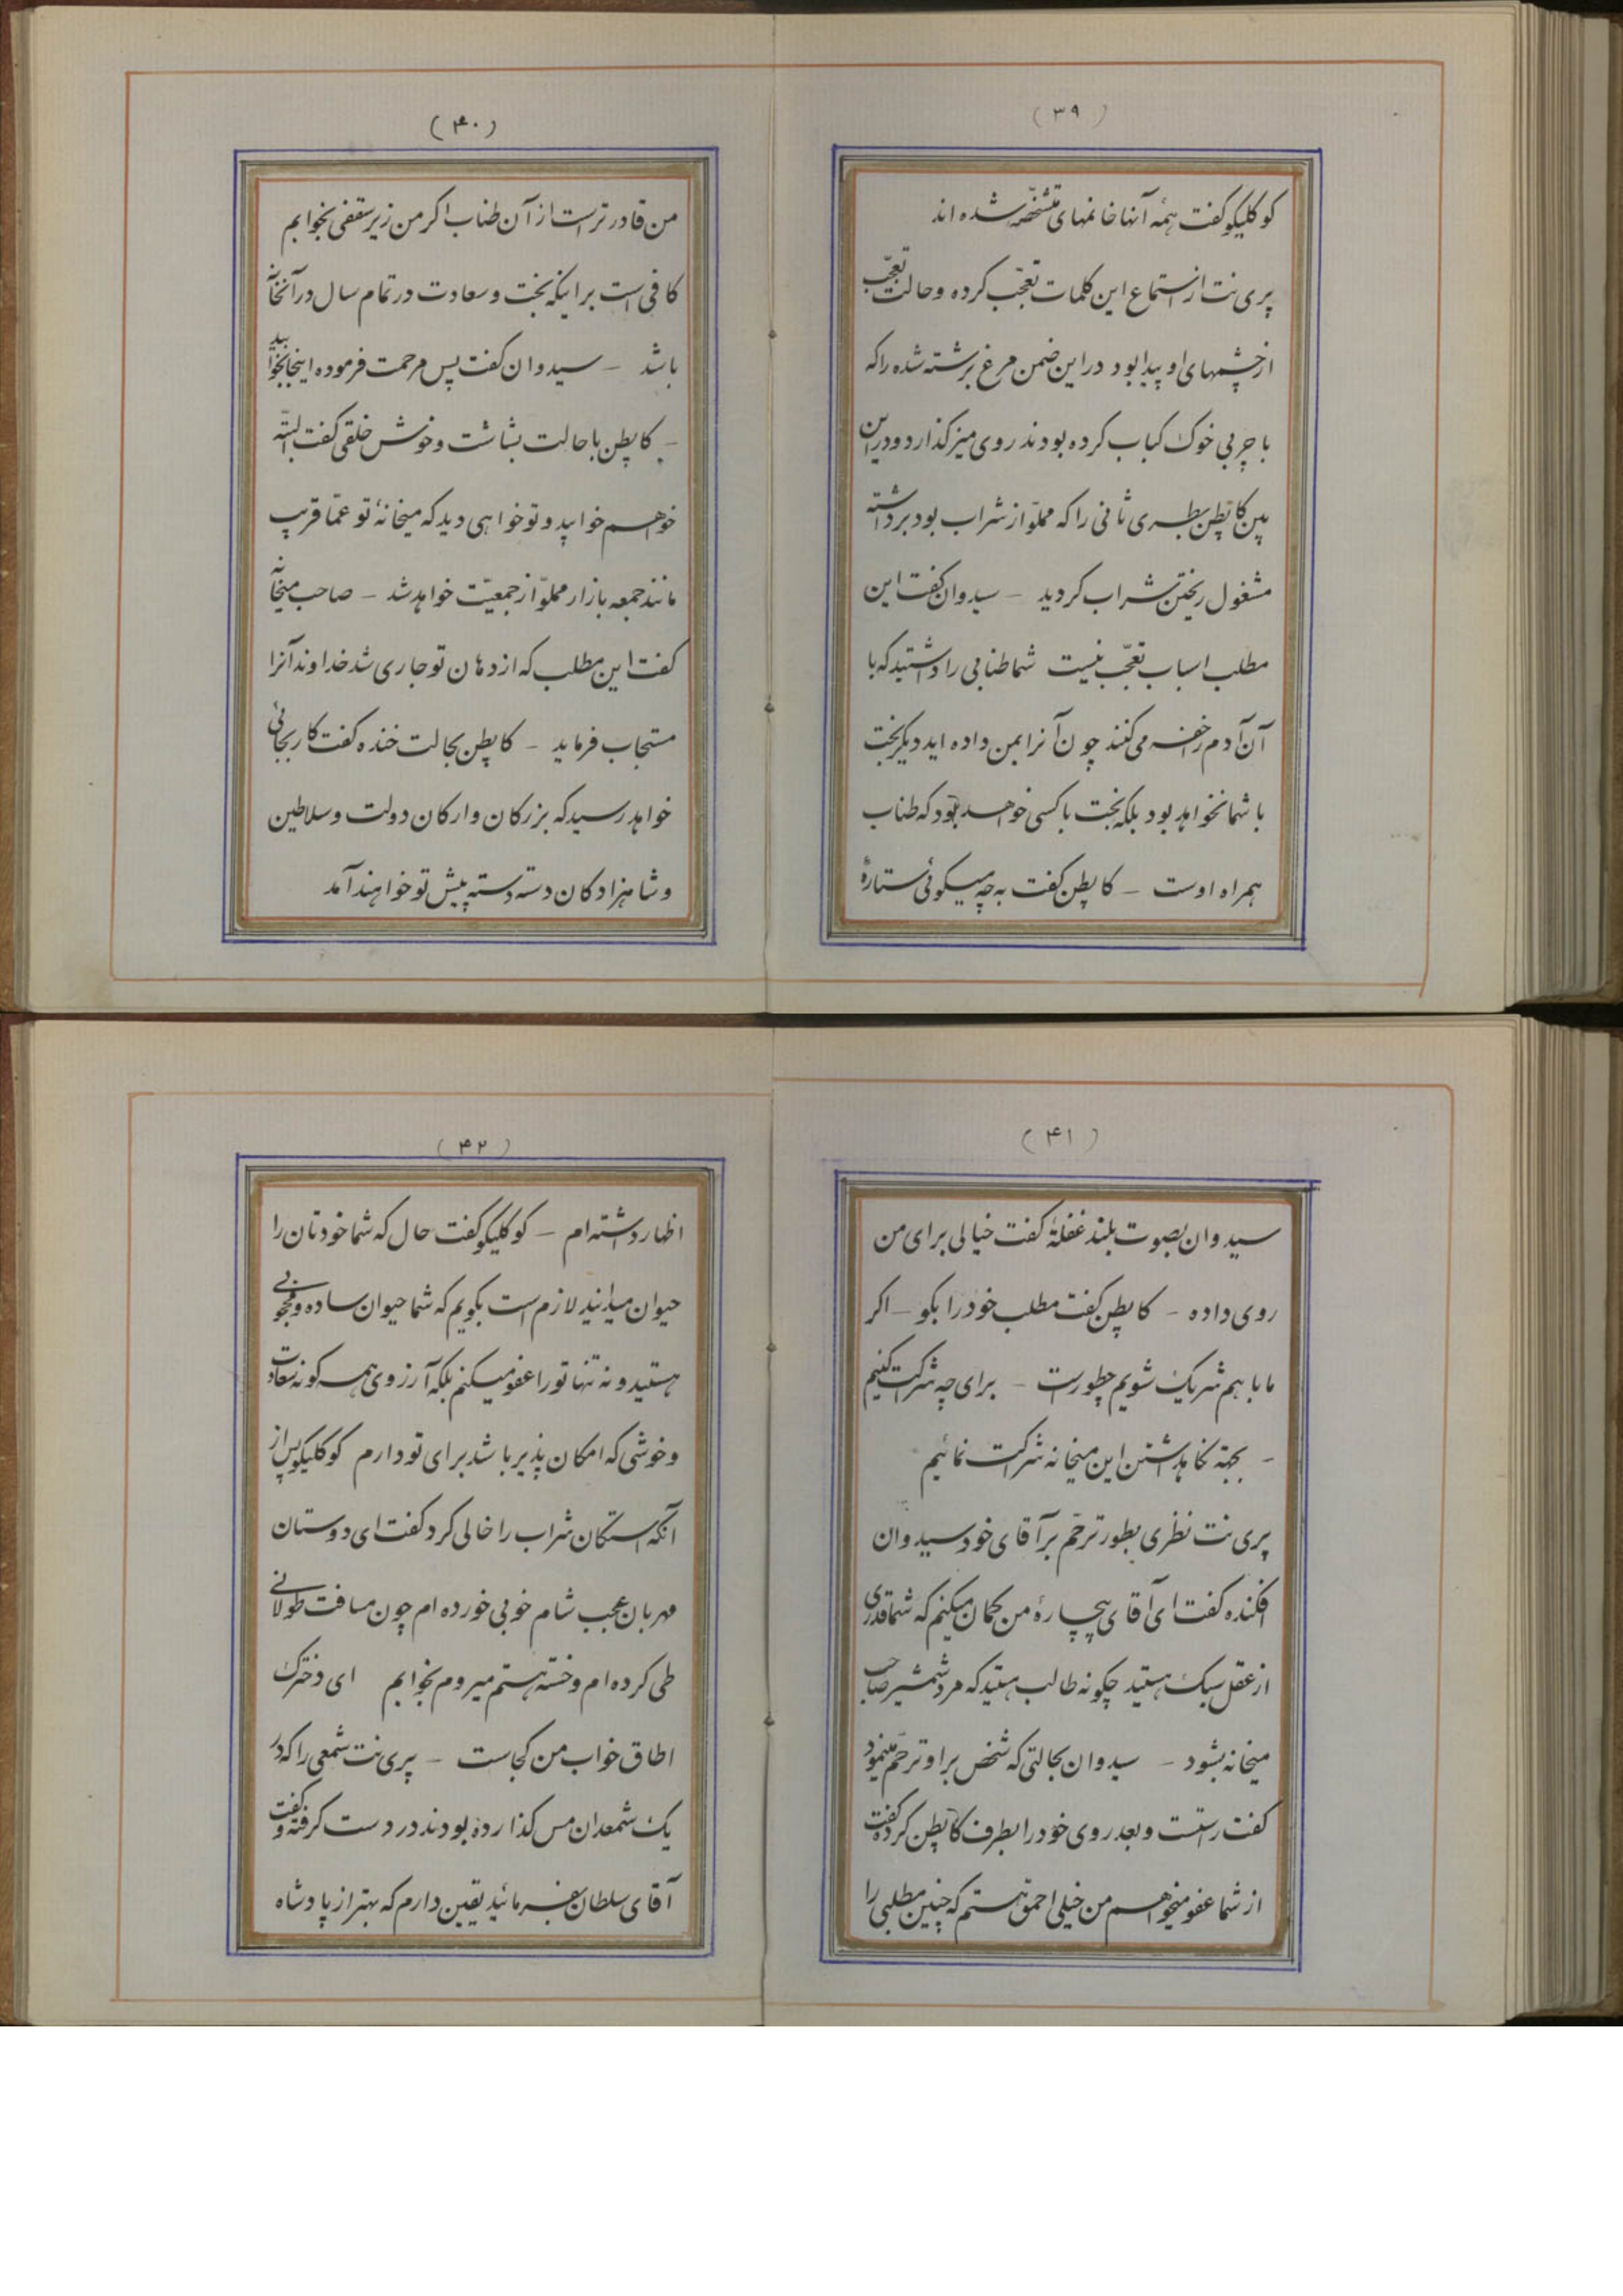 (۳۹)
کوکلیکو گفت همهٔ آنها خانمهای متشخصه شده اند
پری نت از استماع این کلمات تعجّب کرده و حالت تعجّب
از چشمهای او پیدا بود در این ضمن مرغ برشته شده را که
با چربی خوک کباب کرده بودند روی میز گذارد و در این
بین کاپطن بطری ثانی را که مملوّ از شراب بود برداشته
مشغول ریختن شراب گردید – سیدوان گفت این
مطلب اسباب تعجّب نیست شما طنابی را داشتید که با
آن آدم خفه می کنند چون آنرا بمن داده اید دیگر بخت
با شما نخواهد بود بلکه بخت با کسی خواهد بود که طناب
همراه اوست – کاپطن گفت به چه میگوئی ستارهٔ
(۴۰)
من قادرتر است از آن طناب اگر من زیر سقفی بخوابم
کافی است برای اینکه بخت و سعادت در تمام سال در آنخانه
باشد – سیدوان گفت پس مرحمت فرموده اینجا بخوابید
– کاپطن با حالت بشاشت و خوش خلقی گفت البتّه
خواهم خوابید و تو خواهی دید که میخانهٔ تو عمّا قریب
مانند جمعه بازار مملوّ از جمعیّت خواهد شد – صاحب میخانه
گفت این مطلب که از دهان تو جاری شد خداوند آنرا
مستجاب فرماید – کاپطن بحالت خنده گفت کار بجائی
خواهد رسید که بزرگان و ارکان دولت و سلاطین
و شاهزادگان دسته دسته پیش تو خواهند آمد
(۴۱)
سیدوان بصوت بلند غفلةً گفت خیالی برای من
روی داده – کاپطن گفت مطلب خود را بگو – اگر
ما با هم شریک شویم چطور است – برای چه شرکت کنیم
– بجهة نگاهداشتن این میخانه شرکت نمائیم
پری نت نظری بطور ترحّم بر آقای خود سیدوان
افکنده گفت ای آقای بیچارهٔ من گمان میکنم که شما قدری
از عقل سبک هستید چگونه طالب هستید که مرد شمشیر صاحب
میخانه بشود – سیدوان بحالتی که شخص بر او ترحّم مینمود
گفت راستست و بعد روی خود را بطرف کاپطن کرده گفت
از شما عفو میخواهم من خیلی احمق هستم که چنین مطلبی را
(۴۲)
اظهار داشته ام – کوکلیکو گفت حال که شما خودتان را
حیوان میدانید لازم است بگویم که شما حیوان ساده و محجوبی
هستید و نه تنها تو را عفو میکنم بلکه آرزوی همه گونه سعادت
و خوشی که امکان پذیر باشد برای تو دارم کوکلیکو پس از
آنکه استکان شراب را خالی کرد گفت ای دوستان
مهربان عجب شام خوبی خورده ام چون مسافت طولانی
طی کرده ام و خسته هستم میروم بخوابم ای دخترک
اطاق خواب من کجاست – پری نت شمعی را که در
یک شمعدان مس گذارده بودند در دست گرفته و گفت
آقای سلطان بفرمائید یقین دارم که بهتر از پادشاه